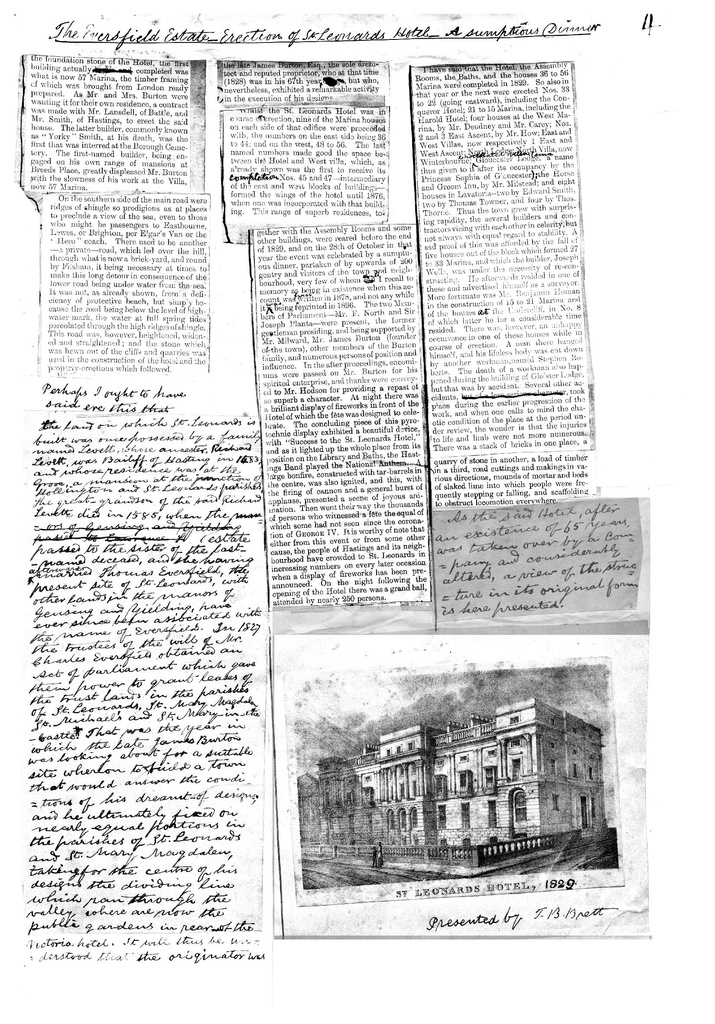 The Eversfield Estate - Erection of St Leonards Hotel - A sumptious Dinner
4
the foundation stone of the Hotel, the first
building actually completed was
what is now 57 Marina, the timber framing
of which was brought from London ready
prepared. As Mr. and Mrs. Burton were
wanting it for their own residence, a contract
was made with Mr. Lansdell, of Battle, and
Mr. Smith, of Hastings, to erect the said
house. The latter builder, commonly known
as "Yorky" Smith, at his death, was the
first that was interred at the Borough Ceme-
tery. The first-named builder, being en-
gaged on his own range of mansions at
Breeds Place, greatly displeased Mr. Burton
with the slowness of his work at the Villa,
now 57 Marina.
On the southern side of the main road were
ridges of shingle so prodigious as at places
to preclude a view of the sea, even to those
who might be passengers to Eastbourne,
Lewes, or Brighton, per Elgar's Van or the
"Hero" coach. There used to be another
—a private—road, which led over the hill,
through what is now a brick-yard, and round
by Filsham, it being necessary at times to
make this long detour in consequence of the
lower road being under water from the sea.
It was not, as already shown, from a defi-
ciency of protective beach, but simply be-
cause the road being below the level of high-
water mark, the water at full spring tides
percolated through the high ridges of shingle.
This road was, however, heightened, widen-
ed and straightened; and the stone which
was hewn out of the cliffs and quarries was
used in the construction of the hotel and the
property-erections which followed.
Perhaps I ought to have
said ere this that
the land on which St. Leonards is
built was once possessed by a family
named Levett, whose ancestor, Richard
Levett, was Bailiff of Hastings in
and whose residence was at the
Grove, a mansion at the junction of
Hollington and St Leonards parishes
The great grandson of the said Richard
Levett died in 1585, when the man-
ors of Gensing and Yielding
passed to (estate
passed to the sister of the last
named deceased, and she having
afterwards married Thomas Eversfield, the
present site of St. Leonards, with
other lands in the manors of
Gensing and Yielding, have
ever since been associated with
the name of Eversfield. In 1827
the trustees of the will of Mr.
Charles Eversfield obtained an
act of parliament which gave
them power to grant leases of
the trust lands in the parishes
of St. Leonards, St. Mary Magdalen
St. Michaels and St. Mary-in-the
-Castle. That was the year in
which the late James Burton
was looking about for a suitable
site whereon to build a town
that would answer the condi
=tions of his dreamt of designs,
and he ultimately fixed on
nearly equal portions in
the parishes of St. Leonards
and St. Mary Magdalen,
taking for the centre of his
designs the dividing line
which ran through the
valley where are now the
public gardens in rear of the
Victoria hotel. It will thus be un-
=derstood that the originator was
the late James Burton, Esq., the sole archi-
tect and reputed proprietor, who at that time
(1828) was in his 67th year, but who,
nevertheless, exhibited a remarkable activity
in the execution of his designs.
Whilst the St. Leonards Hotel was in
course of erection, nine of the Marina houses
on each side of that edifice were proceeded
with, the numbers on the east side being 35
to 44; and on the west, 48 to 56. The last
named numbers made good the space be-
tween the Hotel and West villa, which, as
already shown was the first to receive its
completion Nos. 45 and 47—intermediary
of the east and west blocks of building—
formed the wings of the hotel until 1876,
when one was incorporated with that build-
ing. This range of superb residences, to-
gether with the Assembly Rooms and some
other buildings, were reared before the end
of 1829, and on the 28th of October in that
year the event was celebrated by a sumptu-
ous dinner, partaken of by upwards of 200
gentry and visitors of the town and neigh-
bourhood, very few of whom I recall to
memory as being in existence when this ac-
count was written in 1878, and not any while
it being reprinted in 1896. The two Mem-
bers of Parliament—Mr. F. North and Sir
Joseph Planta—were present, the former
gentleman presiding, and being supported by
Mr. Milward, Mr. James Burton (founder
of the town), other members of the Burton
family, and numerous persons of position and
influence. In the after proceedings, encomi-
ums were passed on Mr. Burton for his
spirited enterprise, and thanks were convey-
ed to Mr. Hodson for providing a repast of
so superb a character. At night there was
a brilliant display of fireworks in front of the
Hotel of which the fête was designed to cele-
brate. The concluding piece of this pyro-
technic display exhibited a beautiful device,
with "Success to the St. Leonards Hotel,"
and as it lighted up the whole place from its
position on the Library and Baths, the Hast-
ings Band played the National Anthem. A
large bonfire, constructed with tar-barrels in
the centre, was also ignited, and this, with
the firing of cannon and a general burst of
applause, presented a scene of joyous ani-
mation. Then went their way the thousands
of persons who witnessed a fête the equal of
which some had not seen since the corona-
tion of GEORGE IV. It is worthy of note that
either from this event or from some other
cause, the people of Hastings and its neigh-
bourhood have crowded to St. Leonards in
increasing numbers on every later occasion
when a display of fireworks has been pre-
announced. On the night following the
opening of the Hotel there was a grand ball,
attended by nearly 250 persons.
I have said that the Hotel, the Assembly
Rooms, the Baths, and the houses 36 to 56
Marina were completed in 1829. So also in
that year or the next were erected Nos. 33
to 22 (going eastward), including the Con-
queror Hotel; 21 to 15 Marina, including the
Harold Hotel; four houses at the West Ma-
rina, by Mr. Deudney and Mr. Carey; Nos.
2 and 3 East Ascent, by Mr. How; East and
West Villas, now respectively 1 East and
West Ascent; North Villa, now
Winterbourne; Gloucester Lodge, a name
thus given to it after its occupancy by the
Princess Sophia of Gloucester; the Horse
and Groom Inn, by Mr. Milstead; and eight
houses in Lavatoria—two by Edward Smith,
two by Thomas Towner, and four by Thos.
Thorne. Thus the town grew with surpris-
ing rapidity, the several builders and con-
tractors vieing with each other in celerity; but
not always with equal regard to stability. A
proof of this was afforded by the fall of
five houses out of the block which formed 27
to 33 Marina, and which the builder, Joseph
Wells, was under the necessity of re-con-
structing. He afterwards resided in one of
these and advertised himself as a surveyor.
More fortunate was Mr. Benjamin Homan
in the construction of 15 to 21 Marina and
of the houses at the Undercliff, in No. 8
of which latter he for a considerable time
resided. There was, however, an unhappy
occurrence in one of these houses while in
course of erection. A man there hanged
himself, and his lifeless body was cut down
by another workman, named Stephen Ro-
berts. The death of a workman also hap-
pened during the building of Glo'ster Lodge,
but that was by accident. Several other ac-
cidents, took
place during the earlier progress of the
work, and when one calls to mind the cha-
otic condition of the place at the period un-
der review, the wonder is that the injuries
to life and limb were not more numerous.
There was a stack of bricks in one place, a
quarry of stone in another, a load of timber
in a third, road cuttings and makings in va-
rious directions, mounds of mortar and beds
of slaked lime into which people were fre-
quently stepping or falling, and scaffolding
to obstruct locomotion everywhere.
As the said Hotel, after
an existence of 65 years,
was taken over by a Com
=pany and considerably
altered, a view of the struc
=ture in its original form
is here presented.
ST LEONARDS HOTEL, 1829
Presented by T. B. Brett